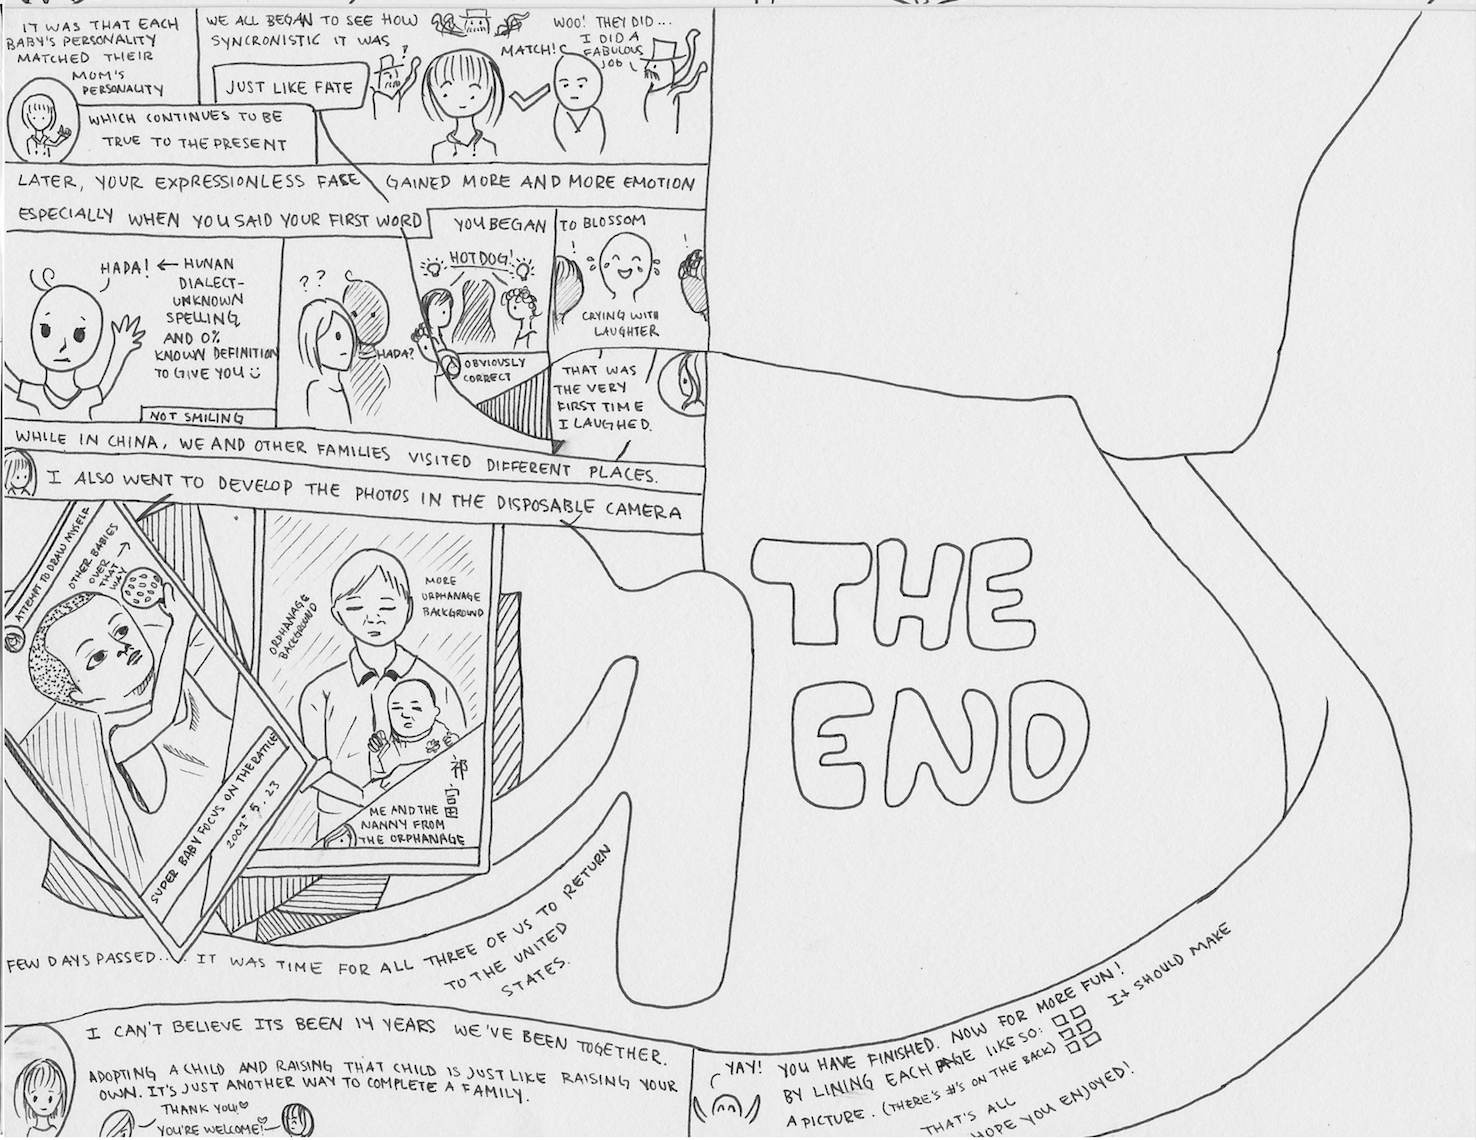 IT WAS THAT EACH
BABY'S PERSONALITY
MATCHED THEIR
MOM'S
PERSONALITY
WHICH CONTINUES TO BE
TRUE TO THE PRESENT
WE ALL BEGAN TO SEE HOW
SYNCRONISTIC IT WAS
JUST LIKE FATE
?
MATCH!
WOO! THEY DID...
I DID A
FABULOUS
JOB
LATER, YOUR EXPRESSIONLESS FACE GAINED MORE AND MORE EMOTION
ESPECIALLY WHEN YOU SAID YOUR FIRST WORD
HADA! ← HUNAN
DIALECT-
UNKNOWN
SPELLING
AND 0%
KNOWN DEFINITION
TO GIVE YOU
NOT SMILING
? ?
HADA?
YOU BEGAN
HOTDOG!
OBVIOUSLY
CORRECT
TO BLOSSOM
! !
CRYING WITH
LAUGHTER
THAT WAS
THE VERY
FIRST TIME
I LAUGHED.
WHILE IN CHINA, WE AND OTHER FAMILIES VISITED DIFFERENT PLACES.
I ALSO WENT TO DEVELOP THE PHOTOS IN THE DISPOSABLE CAMERA
ATTEMPT TO DRAW MYSELF
OTHER BABIES
OVER
THAT
WAY
SUPER BABY FOCUS ON THE RATTLE
2001 5.23
ORPHANAGE
BACKGROUND
MORE
ORPHANAGE
BACKGROUND
祁
富
ME AND THE
NANNY FROM
THE ORPHANAGE
FEW DAYS PASSED.... IT WAS TIME FOR ALL THREE OF US TO RETURN
TO THE UNITED
STATES.
I CAN'T BELIEVE ITS BEEN 14 YEARS WE'VE BEEN TOGETHER.
ADOPTING A CHILD AND RAISING THAT CHILD IS JUST LIKE RAISING YOUR
OWN. IT'S JUST ANOTHER WAY TO COMPLETE A FAMILY.
THANK YOU!
YOU'RE WELCOME!
THE
END
YAY! YOU HAVE FINISHED. NOW FOR MORE FUN!
BY LINING EACH PAGE LIKE SO: IT SHOULD MAKE
A PICTURE. (THERE'S #'S ON THE BACK)
THAT'S ALL
HOPE YOU ENJOYED!